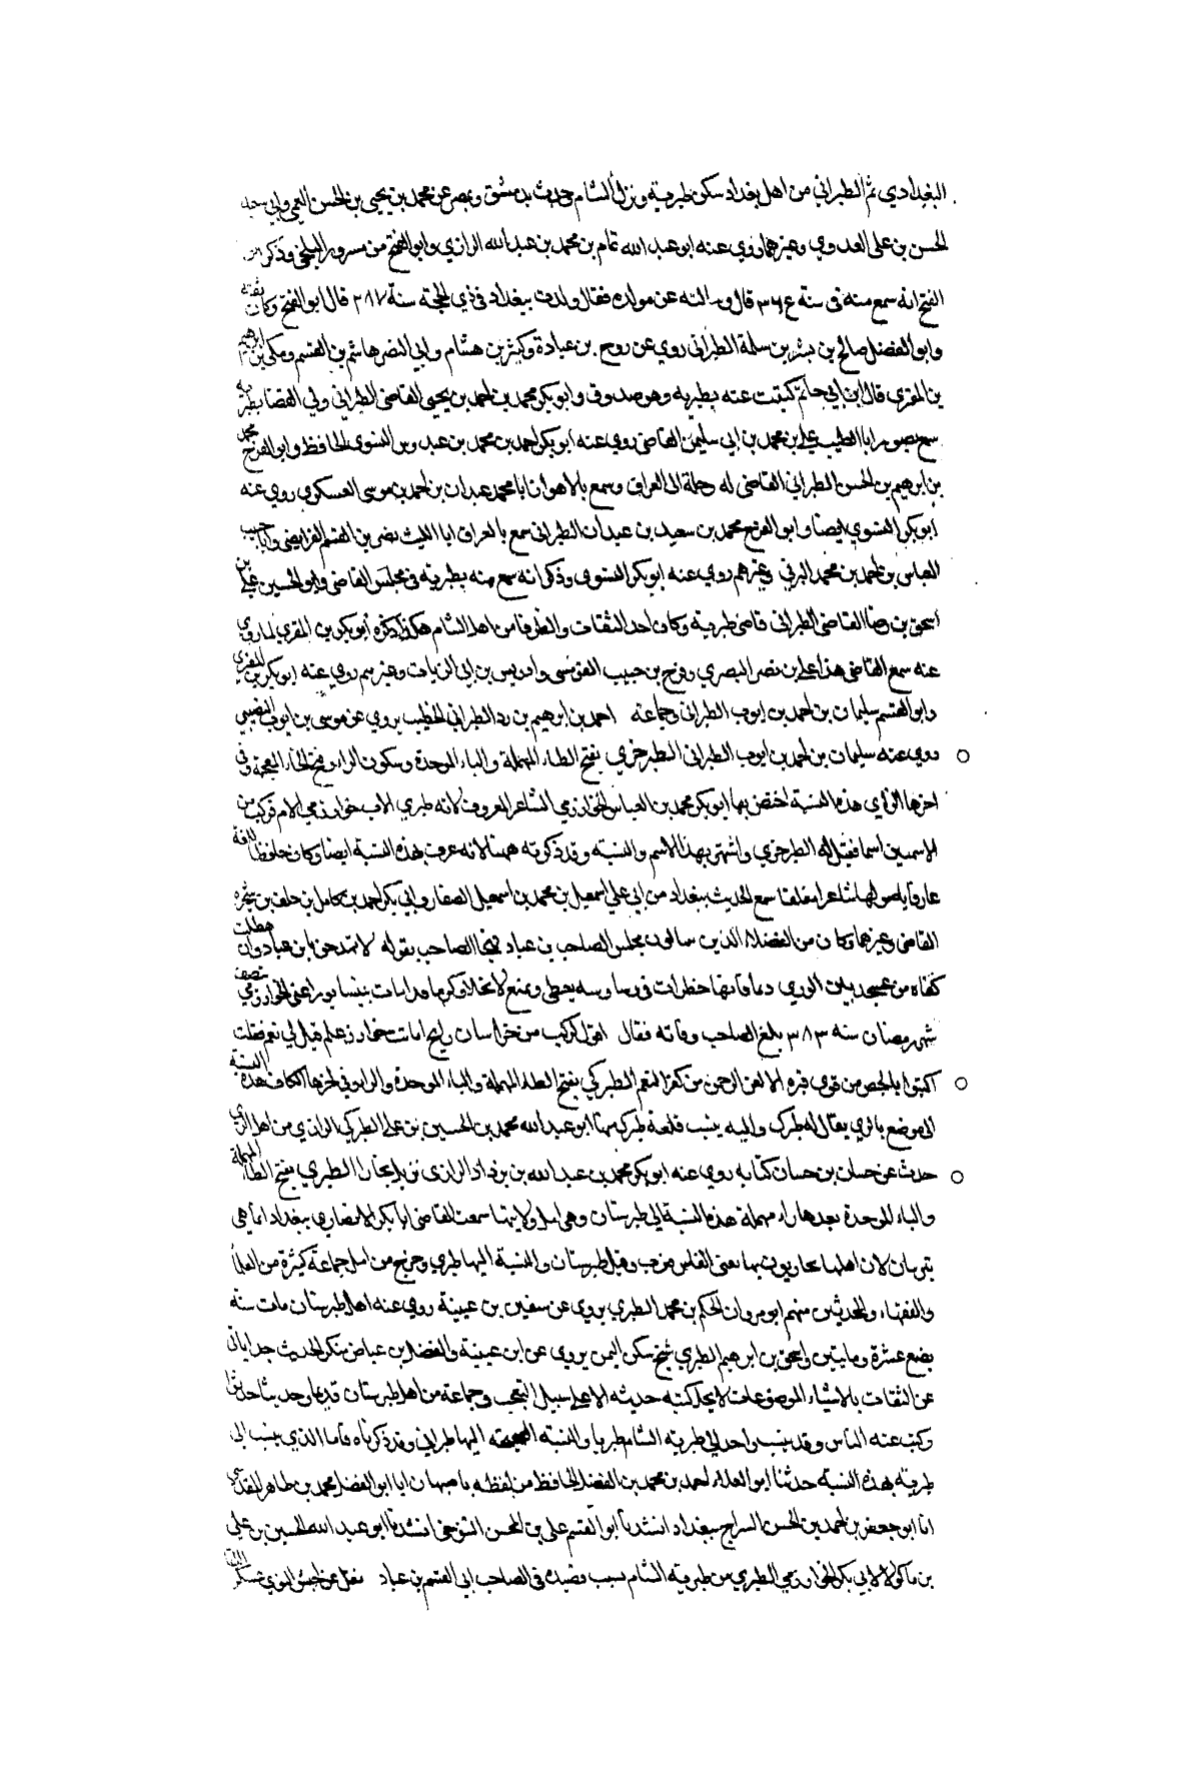 البغدادي ثم الطبراني من اهل بغداد سكن طبرية ونزل الشام وحدث بدمشق وبمصر عن محمد بن يحيى بن الحسن العمي وابي سعيد
الحسن بن علي العدوي وغيرهما روي عنه ابو عبد الله تمام بن محمد بن عبد الله الرازي وابو الفتح بن مسرور البلخي وذكر ابو
الفتح انه سمع منه في سنة قال وسالته عن مولده فقال ولدت ببغداد في ذي الحجة سنة ٢٨٧ قال ابو الفتح وكان ثقة
وابو الفضل صالح بن بشر بن سلمة الطبراني روي عن روح بن عبادة وكثير بن هشام وابي النضر هاشم بن القسم ومكي بن ابرهيم
بن المقري قال ابن ابي حاتم كتبت عنه بطبرية وهو صدوق وابو بكر محمد بن احمد بن يحيى القاضي الطبراني ولي القضا بطبرية
سمع بصور ابا الطيب علي بن محمد بن ابي سليمن القاضي روي عنه ابو بكر احمد بن محمد بن عبدوس النسوي الحافظ وابو الفرج محمد
بن ابرهيم بن الحسن الطبراني القاضي له رحلة الى العراق وسمع بالاهواز ابا محمد عبدان بن احمد بن موسى العسكري روي عنه
ابو بكر النسوي ايضا وابو الفرج محمد بن سعيد بن عبدان الطبراني سمع بالعراق ابا الليث نصر بن القسم الفرايضي وابا حبيب
العباس بن احمد بن محمد البرتي وغيرهم روي عنه ابو بكر النسوي وذكر انه سمع منه بطبرية في مجلس القاضي وابو الحسين علي بن
اسحق بن رضا القاضي الطبراني قاضي طبرية وكان احد الثقات والظرفا من اهل الشام هكذا ذكره ابو بكر بن المقري لما روي
عنه سمع القاضي هذا علي بن نصر البصري ونوح بن حبيب القومسي وادريس بن ابي الزيات وغيرهم روي عنه ابو بكر بن المقري
وابو القسم سليمان بن احمد بن ايوب الطبراني وجماعة احمد بن ابرهيم بن رد الطبراني الخطيب يروي عن موسى بن ايوب النصيبي
روي عنه سليمان بن احمد بن ايوب الطبراني الطبرخزي بفتح الطاء المهملة والباء الموحدة وسكون الراء وفتح الخاء المعجمة وفي
اخرها الزاي هذه النسبة اختص بها ابو بكر محمد بن العباس الخوارزمي الشاعر المعروف لانه طبري الاب خوارزمي الام فركب من
الاسمين اسما فقيل له الطبرخزي واشتهر بهذا الاسم والنسبة وقد ذكرته ههنا لانه عرف بهذه النسبة ايضا وكان حافظا للغة
عارفا باصولها شاعرا مفلقا سمع الحديث ببغداد من ابي علي اسمعيل بن محمد بن اسمعيل الصفار وابي بكر احمد بن كامل بن خلف بن شجرة
القاضي وغيرهما وكان من الفضلاء الذين مجلس الصاحب بن عباد الصاحب بقوله لا تمدحن ابن عباد وان هطلت
كفاه من عسجد الوري خطرات من وساوسه يعطي ويمنع لا بخلا ولا كرما مات بنيسابور اعني الخوارزمي منتصف
شهر رمضان سنة ٣٨٣ بلغ الصاحب وفاته فقال اقول لركب من خراسان رايح امات خوارزمكم قيل لي نعم فقلت
اكتبوا بالجص من فوق قبره الا لعن الرحمن من كفر النعم الطبركي بفتح الطاء المهملة والباء الموحدة والراء وفي اخرها الكاف هذه النسبة
الى موضع بالري يقال له طبرك واليه ينسب قلعة طبرك منها ابو عبد الله محمد بن الحسين بن علي الطبركي الرازي من اهل الري
حدث عن حسان بن حسان كتابه روي عنه ابو بكر محمد بن عبد الله بن يزداد الرازي نزيل بخارا الطبري بفتح الطاء المهملة
والباء الموحدة بعدها راء مهملة هذه النسبة الى طبرستان وهي امل وولايتها سمعت القاضي ابا بكر الانصاري ببغداد انما هي
تبرستان لان اهلها يحاربون بها يعني الفاس فعرب وقيل طبرستان والنسبة اليها طبري وخرج من امل جماعة كثيرة من العلماء
والفقهاء والمحدثين منهم ابو مروان الحكم بن محمد الطبري يروي عن سفين بن عيينة روي عنه اهل طبرستان مات سنة
بضع عشرة ومايتين واسحق بن ابرهيم الطبري شيخ سكن اليمن يروي عن ابن عيينة والفضيل بن عياض منكر الحديث جدا ياتي
عن الثقات بالاشياء الموضوعات لا يحل كتبه حديثه الا على سبيل التعجب وجماعة من اهل طبرستان قديما وحديثا حدثوا
وكتب عنه الناس وقد ينسب واحد الى طبرية الشام طبريا والنسبة الصحيحة اليها طبراني وقد ذكرناه فاما الذي ينسب الى
طبرية بهذه النسبة حدثنا ابو العلاء احمد بن محمد بن الفضل الحافظ من لفظه باصبهان ابا ابو الفضل محمد بن طاهر المقدسي
انا ابو جعفر بن احمد بن الحسن السراج ببغداد انشدنا ابو القسم علي بن المحسن التنوخي انشدنا ابو عبد الله الحسين بن علي
بن ماكولا لابي بكر الخوارزمي الطبري من طبرية الشام نسيب قصيدة في الصاحب ابي القسم بن عباد